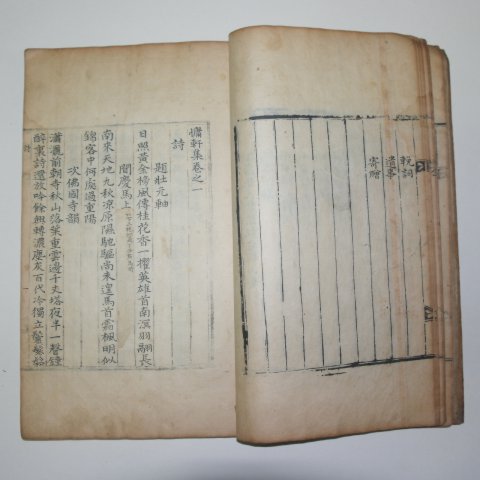 輓詞
遺事
寄贈
慵軒集卷之一
詩
題壯元軸
日照黃金榜風傳桂花香一擢英雄首南溟羽翮長
聞慶馬上
南來天地九秋凉原隰馳驅尚未遑馬首霜楓明似
錦客中何處過重陽
次佛國寺韻
瀟灑前朝寺秋山落葉重雲邊千丈塔夜半一聲鍾
醉裏詩還放吟餘興轉濃塵灰百代冷獨立鬢鬅鬆